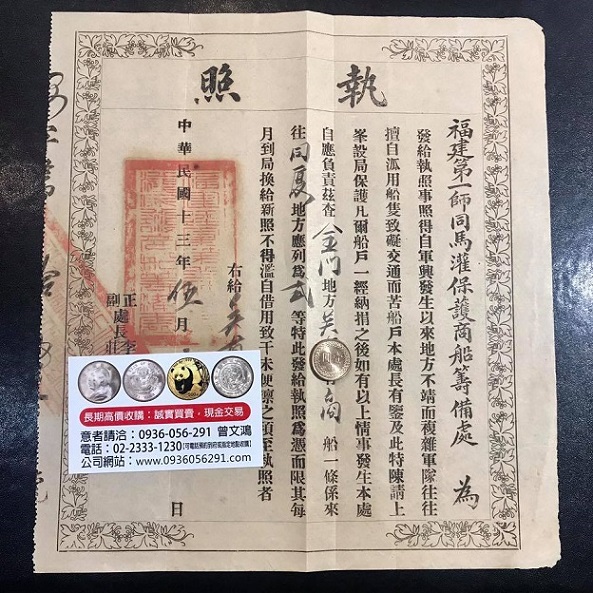 執照
福建第一師同馬灌保護商船籌備處 為
發給執照事照得自軍興發生以來地方不靖而複雜軍隊往往
擅自派用船隻致礙交通而苦船戶本處長有鑒及此特陳請上
峯設局保護凡爾船戶一經納捐之後如有以上情事發生本處
自應負責茲查金門地方吳 有 商船一條係來
往同廈地方應列為弍等特此發給執照為憑而限其每
月到局換給新照不得濫自借用致干未便凜之須至執照者
右給吳
正處長李
副處長莊
中華民國十三年伍月 日
長期高價收購:誠實買賣,現金交易
意者請洽:0936-056-291 曾文鴻
電話:02-2333-1230(可電話預約到府或指定地點收購)
公司網站:www.0936056291.com